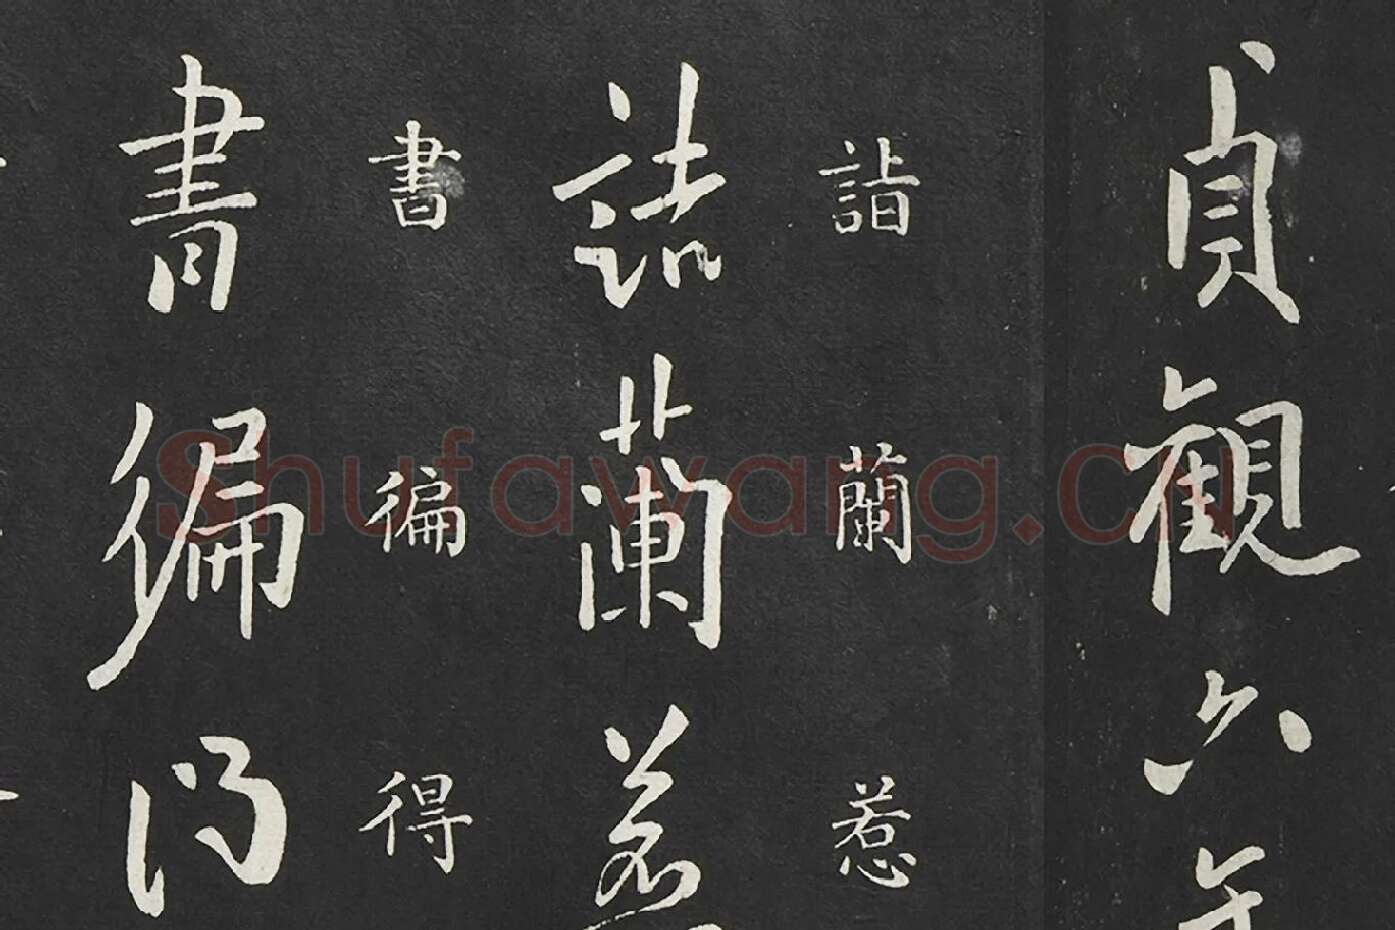 貞觀六年
詣蘭惹
詣蘭惹
書徧得
書徧得
Shufawang.cn